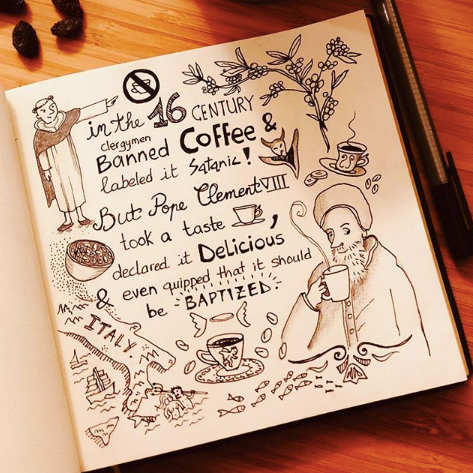 in the 16 CENTURY
clergymen
Banned Coffee &
labeled it Satanic!
But Pope Clement VIII
took a taste ,
declared it Delicious
& even quipped that it should
be BAPTIZED
ITALY.